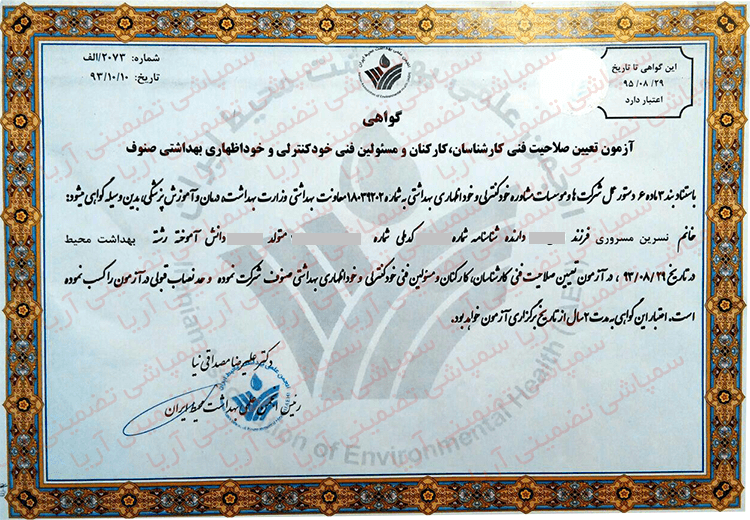 شماره: ۲۰۷۳/الف
تاریخ: ۹۳/۱۰/۱۰
این گواهی تا تاریخ
۹۵/۰۸/۲۹
اعتبار دارد
گواهی
آزمون تعیین صلاحیت فنی کارشناسان، کارکنان و مسئولین فنی خودکنترلی و خوداظهاری بهداشتی صنوف
باستناد بند ۳ ماده ۶ دستورعمل شرکت ها و موسسات مشاوره خودکنترلی و خوداظهاری بهداشتی به شماره ۱۸۰۳۹۲۰۲ معاونت بهداشتی وزارت بهداشت، درمان و آموزش پزشکی، بدین وسیله گواهی میشود:
خانم نسرین مسروری فرزند دارنده شناسنامه شماره کدملی شماره متولد دانش آموخته رشته بهداشت محیط
در تاریخ ۹۳/۰۸/۲۹ ، در آزمون تعیین صلاحیت فنی کارشناسان، کارکنان و مسئولین فنی خودکنترلی و خوداظهاری بهداشتی صنوف شرکت نموده و حد نصاب قبولی در آزمون را کسب نموده
است. اعتبار این گواهی به مدت ۲ سال از تاریخ برگزاری آزمون خواهد بود.
دکتر علیرضا مصداقی نیا
رئیس انجمن علمی بهداشت محیط ایران
سمپاشی تضمینی آریا
of Environmental Health